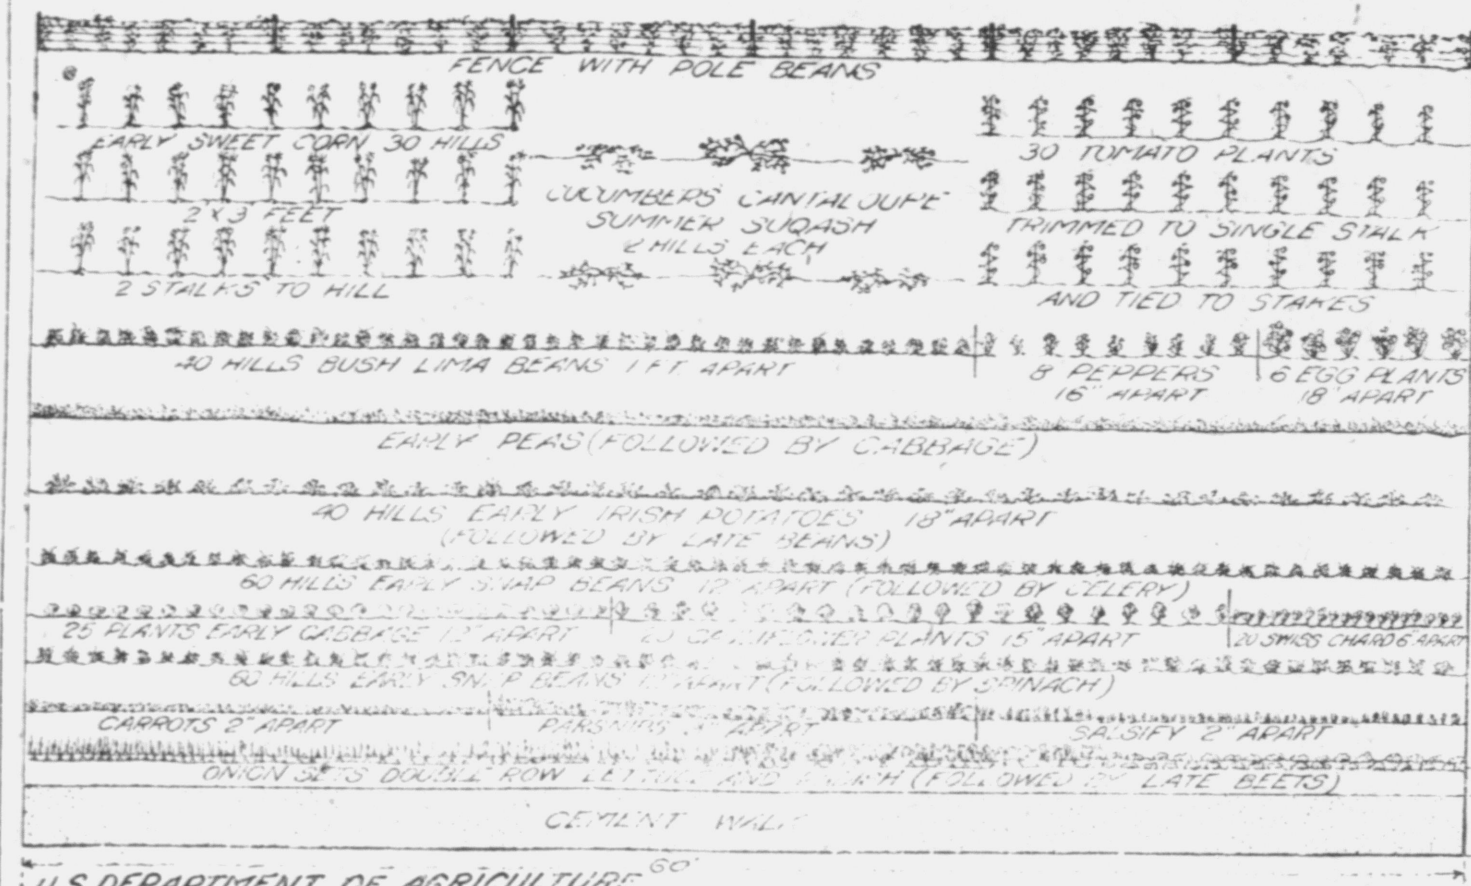 FENCE WITH POLE BEANS
EARLY SWEET CORN 30 HILLS
2 X 3 FEET
2 STALKS TO HILL
CUCUMBERS CANTALOUPE
SUMMER SUQASH
2 HILLS EACH
30 TOMATO PLANTS
TRIMMED TO SINGLE STALK
AND TIED TO STAKES
40 HILLS BUSH LIMA BEANS 1 FT APART
8 PEPPERS
16" APART
6 EGG PLANTS
18" APART
EARLY PEAS (FOLLOWED BY CABBAGE)
40 HILLS EARLY IRISH POTATOES 18" APART
(FOLLOWED BY LATE BEANS)
60 HILLS EARLY SNAP BEANS 12" APART (FOLLOWED BY CELERY)
25 PLANTS EARLY CABBAGE APART
CAULIFLOWER PLANTS 15" APART
20 SWISS CHARD 6" APART
60 HILLS EARLY SNAP BEANS APART (FOLLOWED BY SPINACH)
CARROTS 2" APART
PARSNIPS APART
SALSIFY 2" APART
ONION SETS DOUBLE ROW LETTUCE AND (FOLLOWED BY LATE BEETS)
CEMENT WALK
60'
U.S. DEPARTMENT OF AGRICULTURE